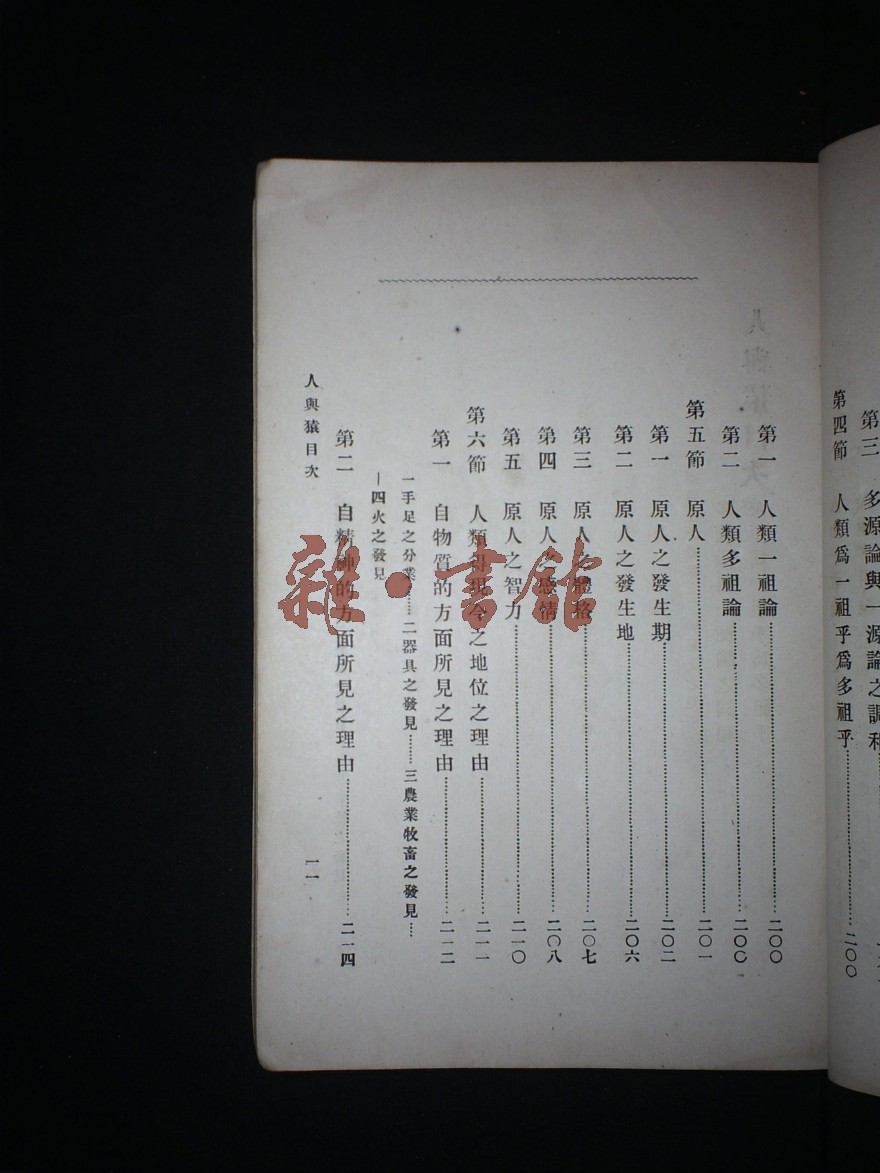 第三　多源論與一源論之調和
第四節　人類爲一祖乎爲多祖乎……二〇〇
第一　人類一祖論……二〇〇
第二　人類多祖論……二〇〇
第五節　原人……二〇一
第一　原人之發生期……二〇二
第二　原人之發生地……二〇六
第三　原人之體格……二〇七
第四　原人之感情……二〇八
第五　原人之智力……二一〇
第六節　人類得現今之地位之理由……二一一
第一　自物質的方面所見之理由……二一二
一手足之分業……二器具之發見……三農業牧畜之發見…
—四火之發見
第二　自精神的方面所見之理由……二一四
人與猿目次
一一
雜·書館